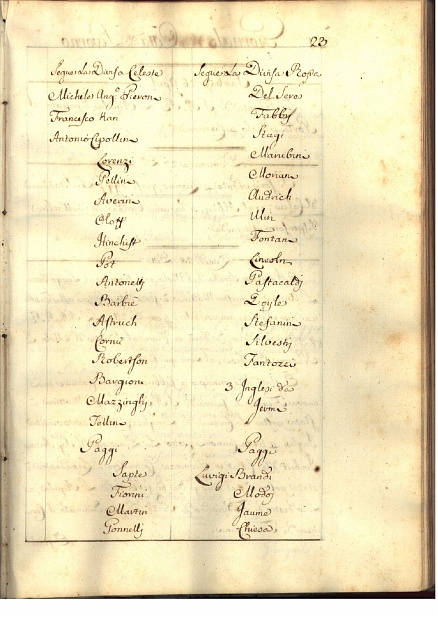 23
Segue La Divisa Celeste
Michele Ang.º Pieron
Francesco Kan
Antonio Cipollin
Lorenzi
Pellin
Averin
Cloff
Hinchist
Pot
Antonelli
Barbie
Astruch
Corni
Robertson
Bargion
Mazzinghi
Tellin
Paggi
Sapte
Fiorini
Martin
Gonnelli
Segue La Divisa Rossa
Del Sere
Fabbj
Stagi
Marubin
Morian
Audrich
Ulin
Fontan
Lincoln
Pastacaldj
Doyle
Stefanin
Silvestrj
Fantozzi
3 Inglesi da
Jerme
Paggi
Luvigi Brandi
Modoj
Jaume
Chiesa